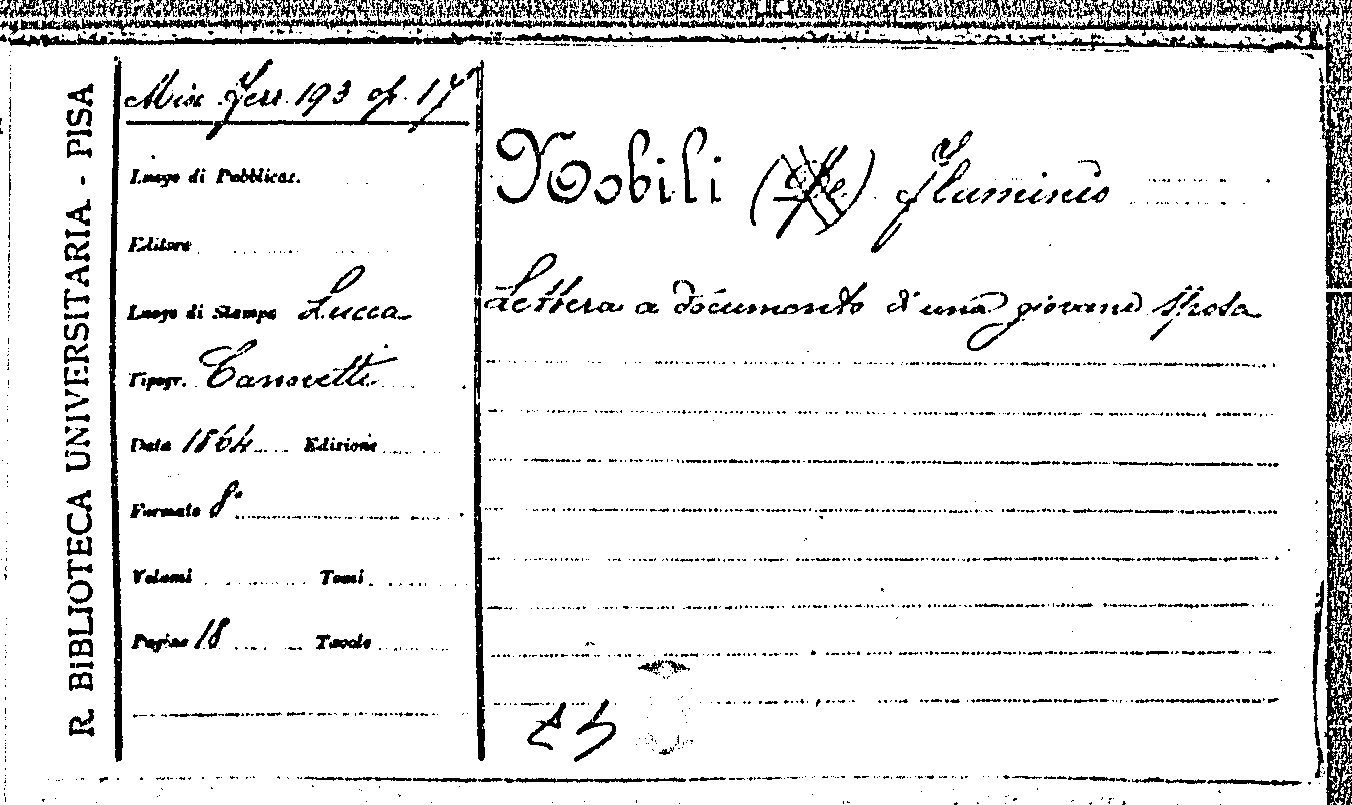 R. BIBLIOTECA UNIVERSITARIA - PISA
Misc. Ferr. 193 op. 17
Luogo di Pubblicaz.
Editore
Luogo di Stampa Lucca
Tipogr. Canovetti
Data 1864 Edizione
Formato 8°
Volumi Tomi
Pagine 18 Tavole
Nobili (De) Flaminio
Lettera a documento di una giovane sposa